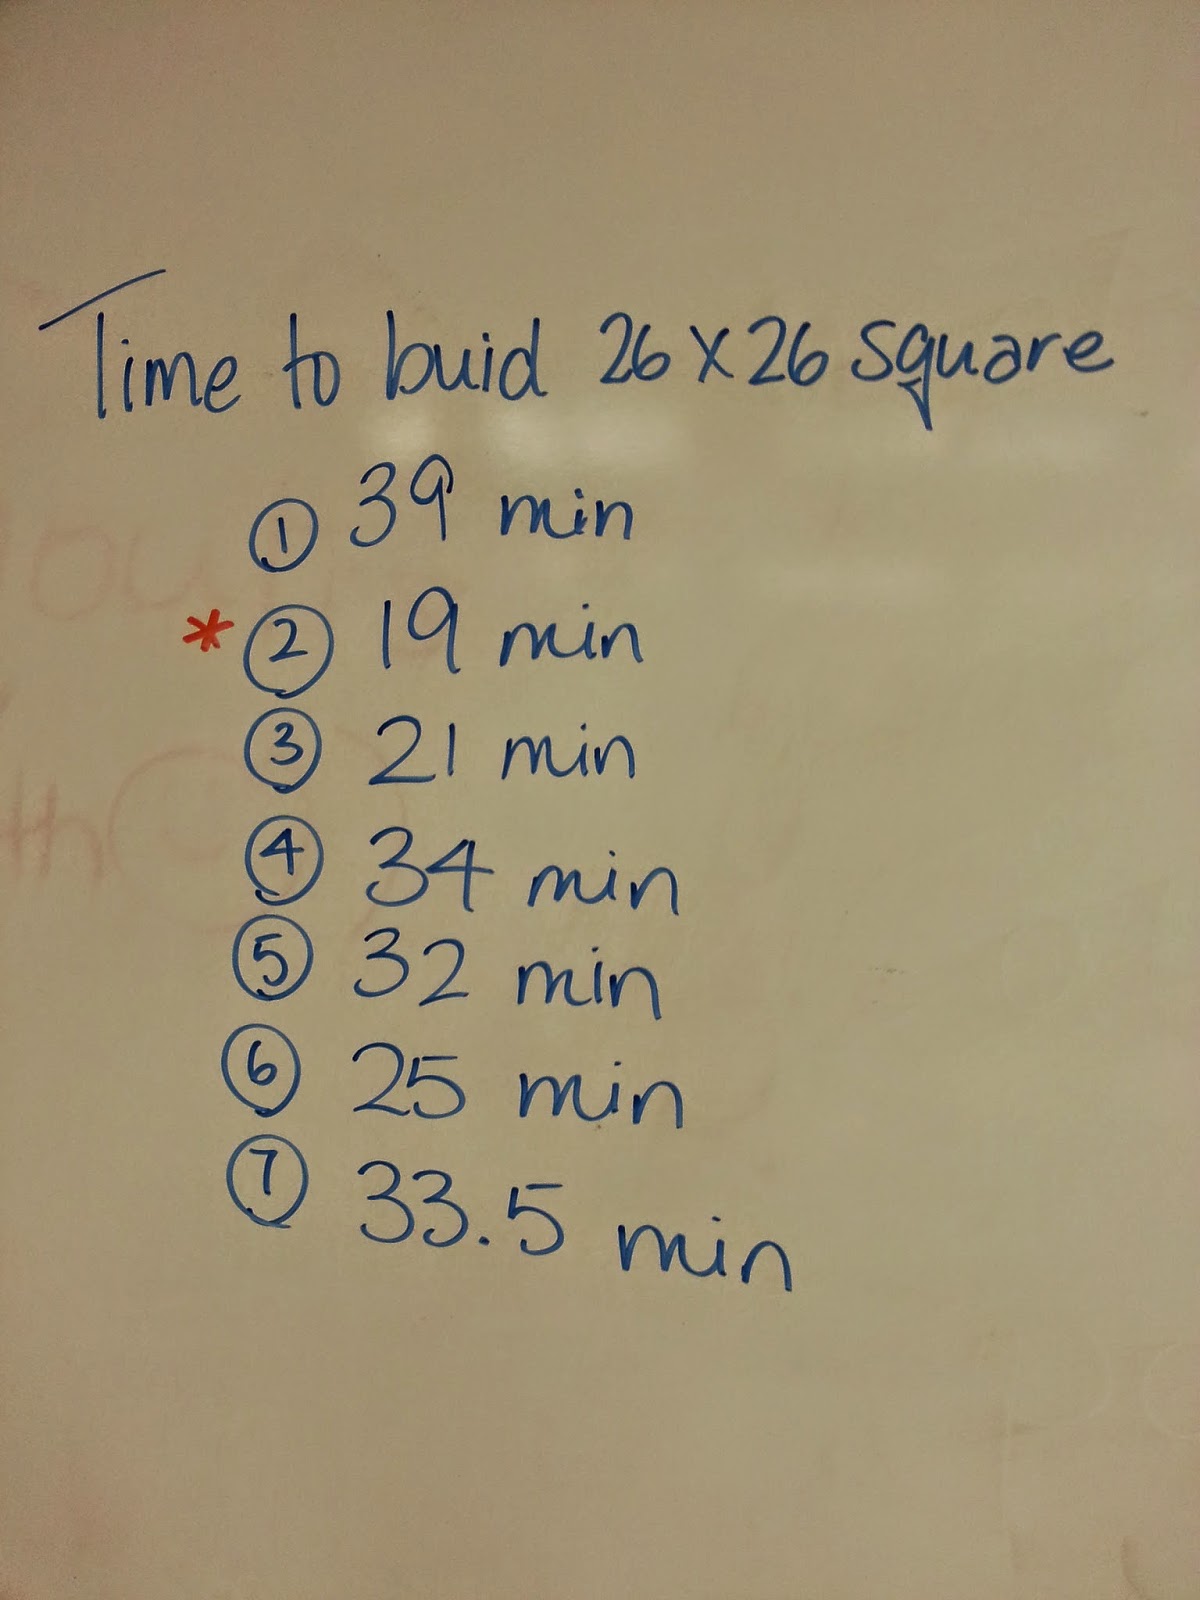 Time to buid 26 x 26 square
① 39 min
* ② 19 min
③ 21 min
④ 34 min
⑤ 32 min
⑥ 25 min
⑦ 33.5 min